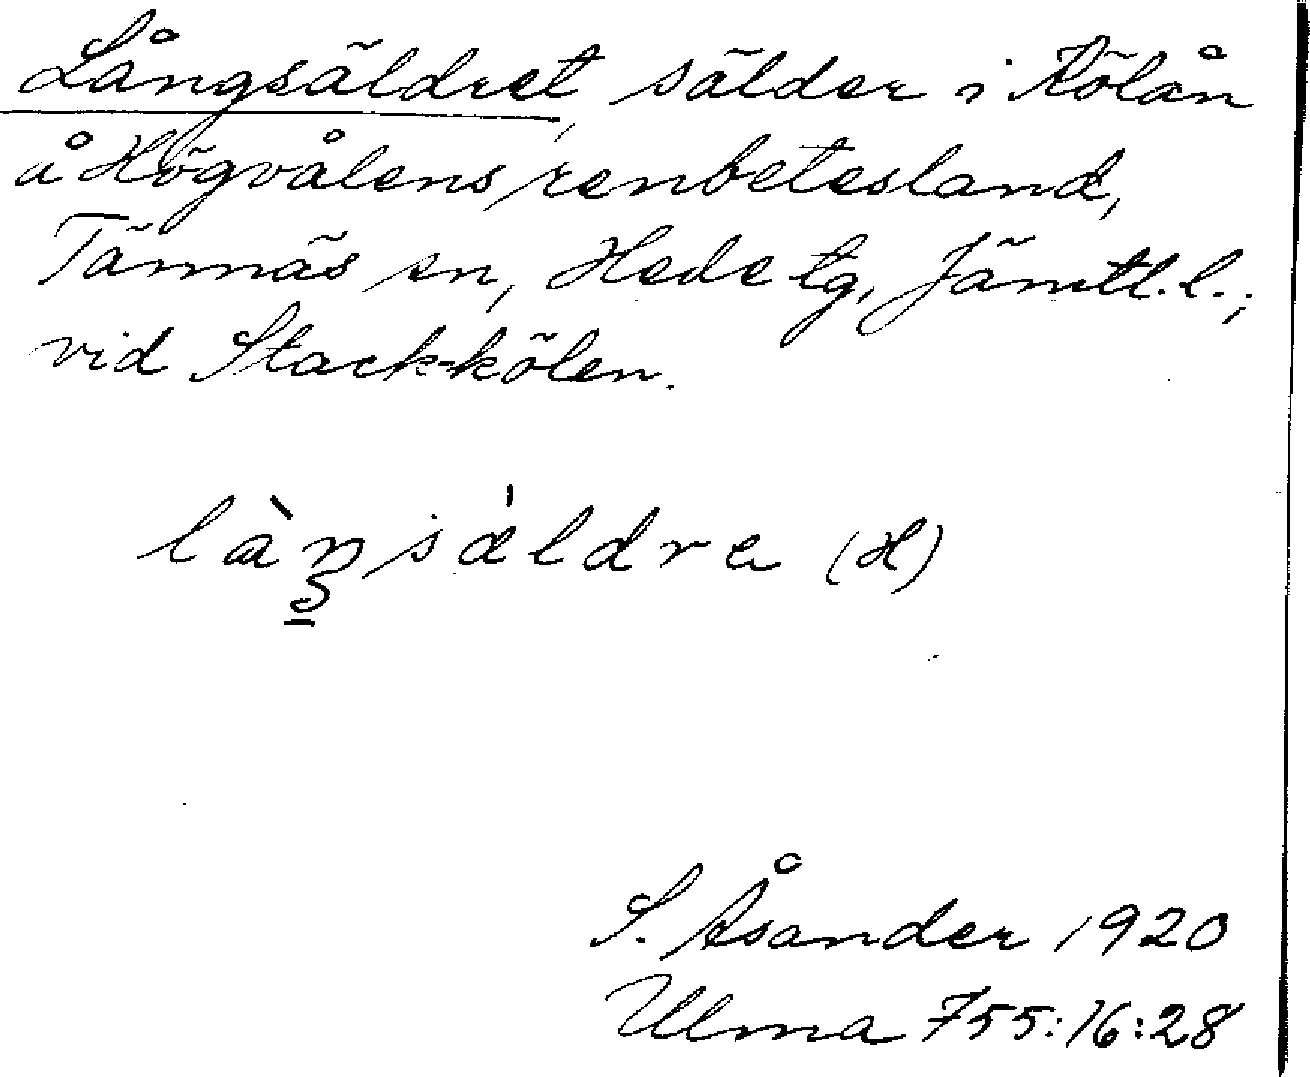 Långsäldret, sälder i Kölån
å Högvålens renbetesland,
Tännäs sn, Hede tg, Jämtl. l.;
vid Stack-kölen.
làŋsäldre (H)
S. Åsander 1920
Ulma 755:16:28